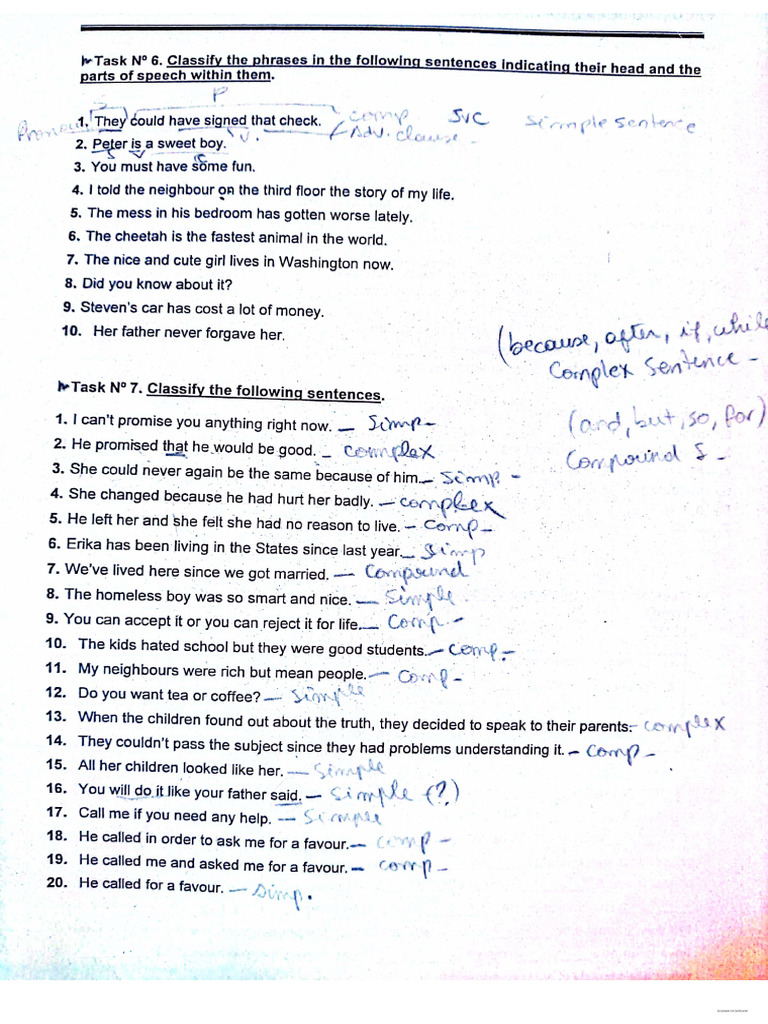 Task Nº 6. Classify the phrases in the following sentences indicating their head and the
parts of speech within them.
P
1. They could have signed that check. comp SVC Simple sentence
Adv. clause -
2. Peter is a sweet boy. v.
S v
3. You must have some fun.
4. I told the neighbour on the third floor the story of my life.
5. The mess in his bedroom has gotten worse lately.
6. The cheetah is the fastest animal in the world.
7. The nice and cute girl lives in Washington now.
8. Did you know about it?
9. Steven's car has cost a lot of money.
10. Her father never forgave her.
(because, after, if, while
Complex Sentence -
Task Nº 7. Classify the following sentences.
(and, but, so, for)
Compound S -
1. I can't promise you anything right now. - Simp-
2. He promised that he would be good. - complex
3. She could never again be the same because of him. - Simp. -
4. She changed because he had hurt her badly. - complex
5. He left her and she felt she had no reason to live. - Comp -
6. Erika has been living in the States since last year. - Simp
7. We've lived here since we got married. - Compound
8. The homeless boy was so smart and nice. - Simple
9. You can accept it or you can reject it for life. - Comp. -
10. The kids hated school but they were good students. - comp. -
11. My neighbours were rich but mean people. - Comp -
12. Do you want tea or coffee? - Simple
13. When the children found out about the truth, they decided to speak to their parents. - complex
14. They couldn't pass the subject since they had problems understanding it. - Comp -
15. All her children looked like her. - Simple
16. You will do it like your father said. - Simple (?)
17. Call me if you need any help. - Simple
18. He called in order to ask me for a favour. - comp -
19. He called me and asked me for a favour. - comp -
20. He called for a favour. - Simp.